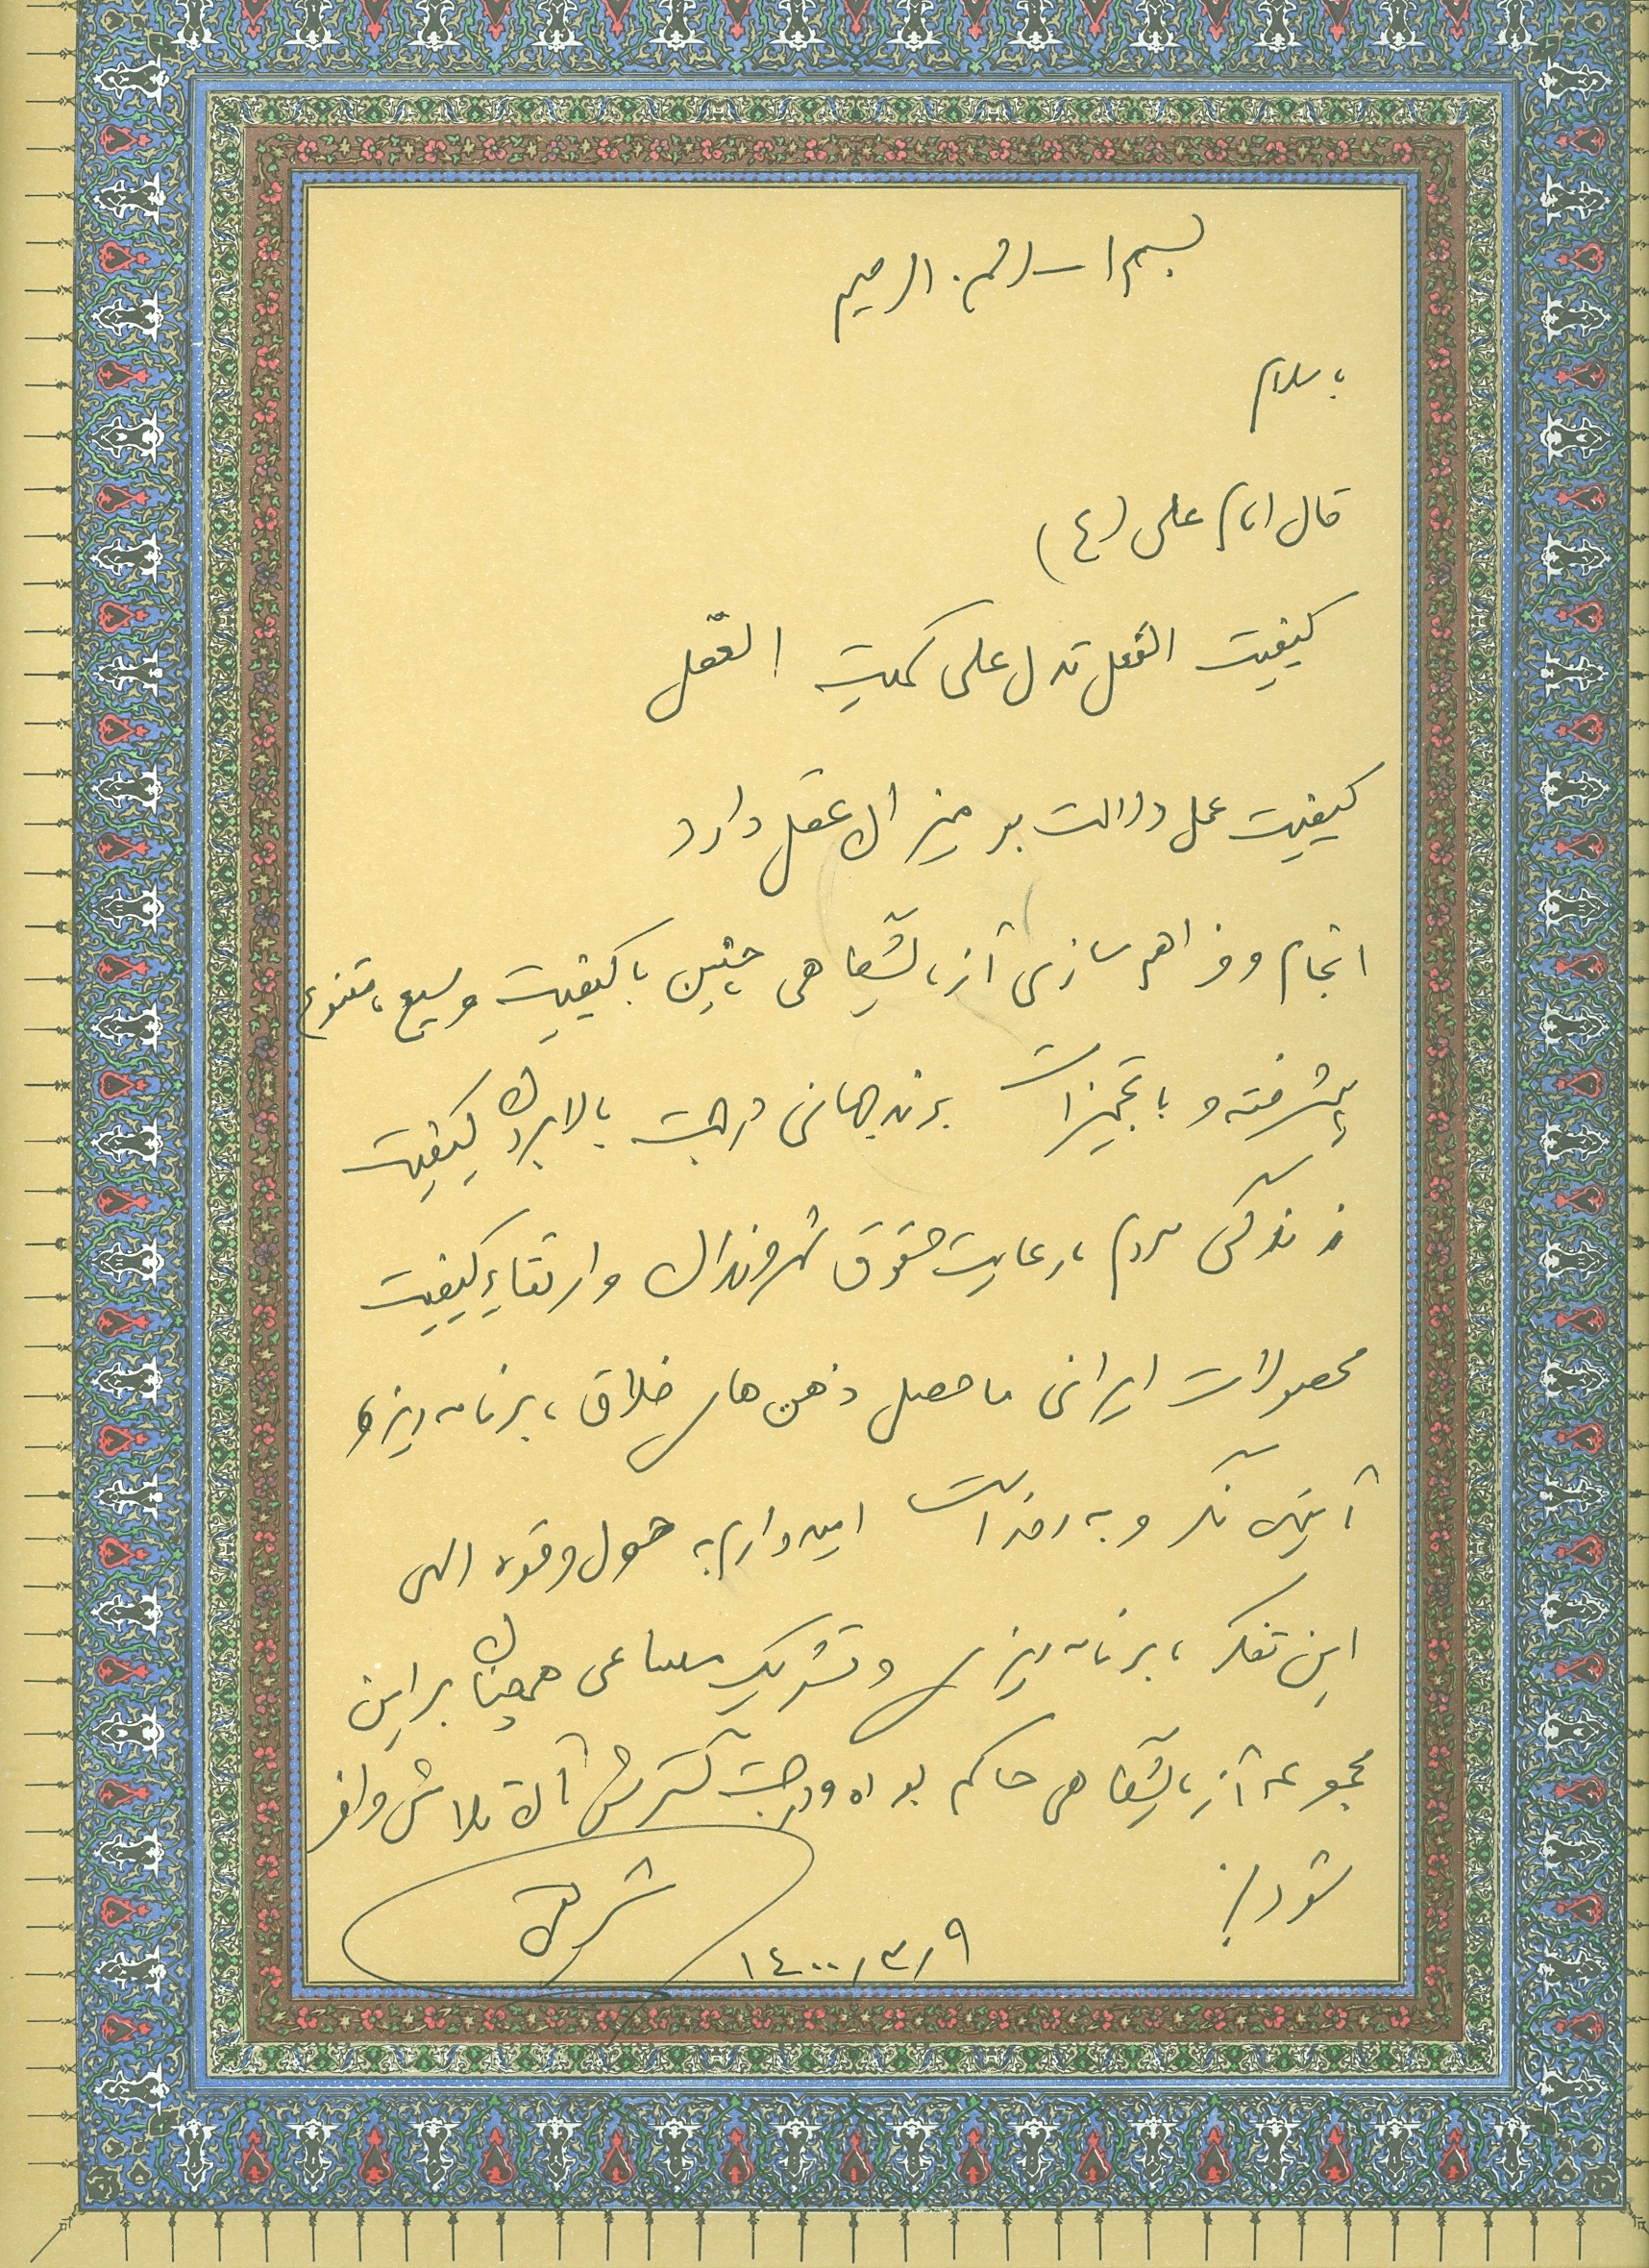 بسم الله الرحمن الرحیم
با سلام
قال امام علی (ع)
کیفیت الفعل تدل علی کمیت العقل
کیفیت عمل دلالت بر میزان عقل دارد
انجام و فراهم سازی آزمایشگاهی چنین با کیفیت وسیع، متنوع
پیشرفته و با تجهیزات برند جهانی در جهت بالا بردن کیفیت
زندگی مردم، رعایت حقوق شهروندان و ارتقاء کیفیت
محصولات ایرانی ماحصل ذهن های خلاق، برنامه ریز و
آینده نگر و به روز است امیدوارم به حول و قوه الهی
این تفکر، برنامه ریزی و تشریک مساعی همچنان بر این
مجموعه آزمایشگاهی حاکم بوده و در جهت گسترش آن تلاش وافر
شود
۱۴۰۰/۳/۹